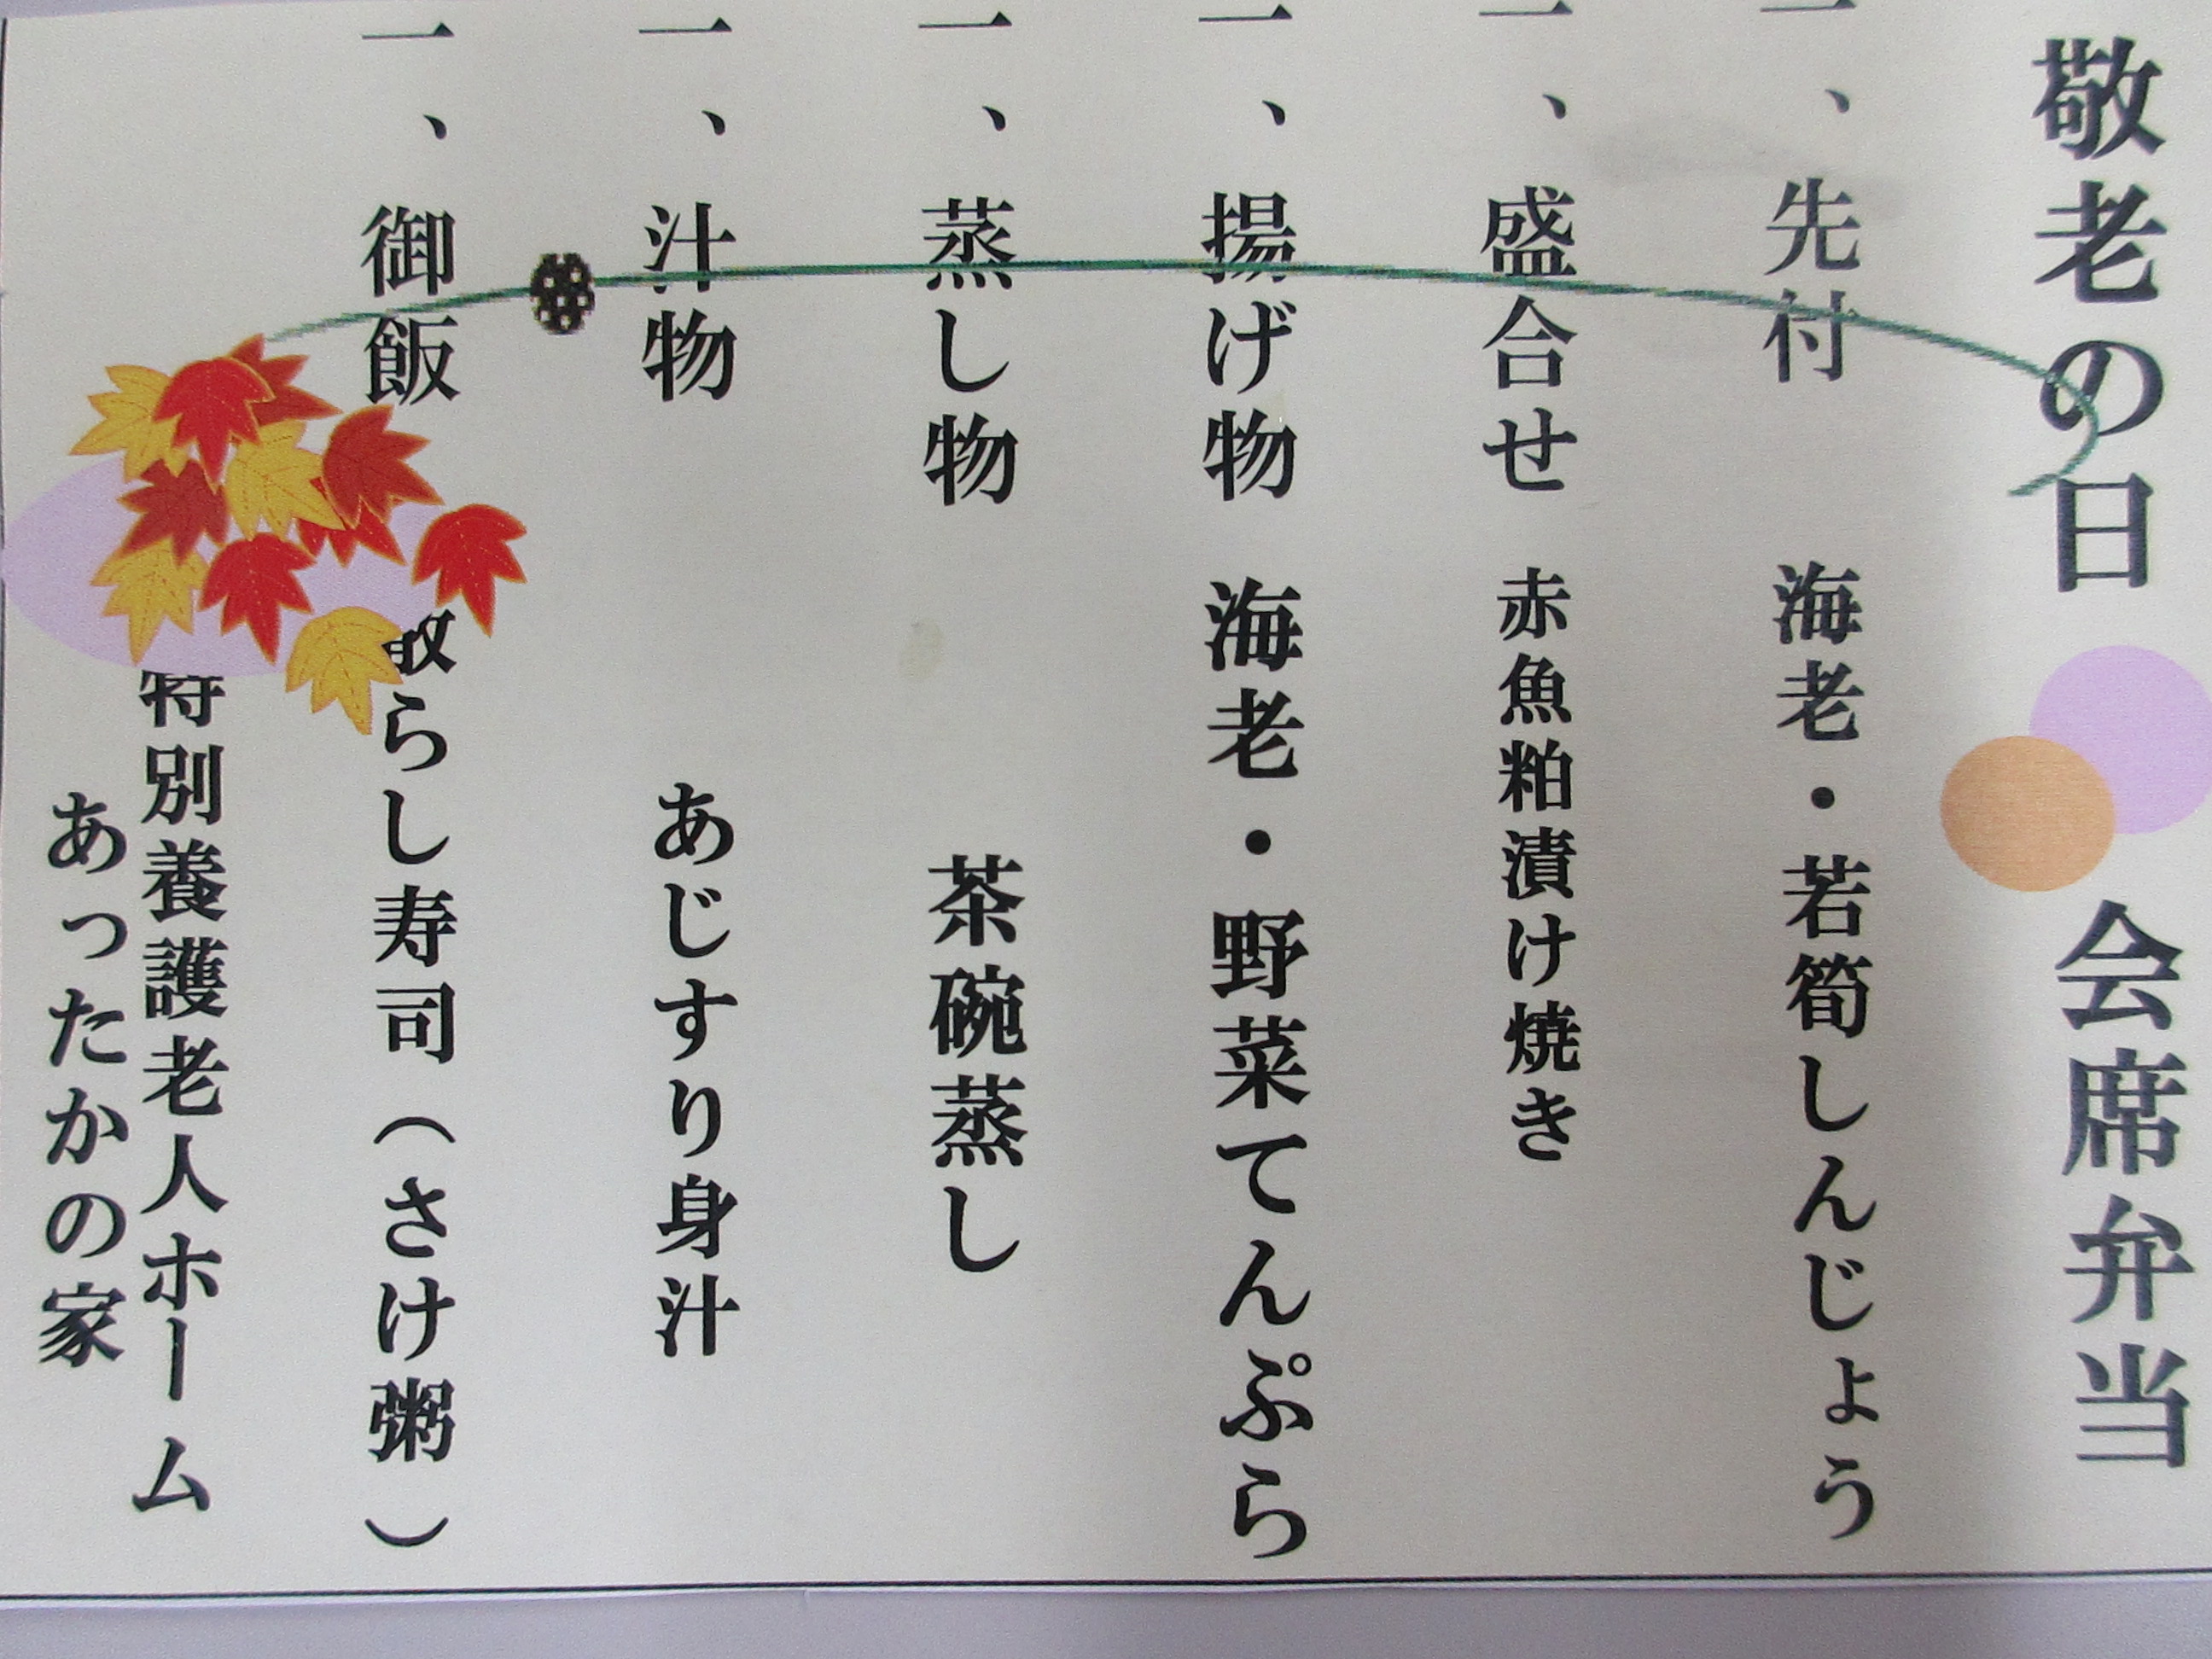 敬老の日 会席弁当
一、先付 海老・若筍しんじょう
一、盛合せ 赤魚粕漬け焼き
一、揚げ物 海老・野菜てんぷら
一、蒸し物 茶碗蒸し
一、汁物 あじすり身汁
一、御飯 散らし寿司（さけ粥）
特別養護老人ホーム
あったかの家